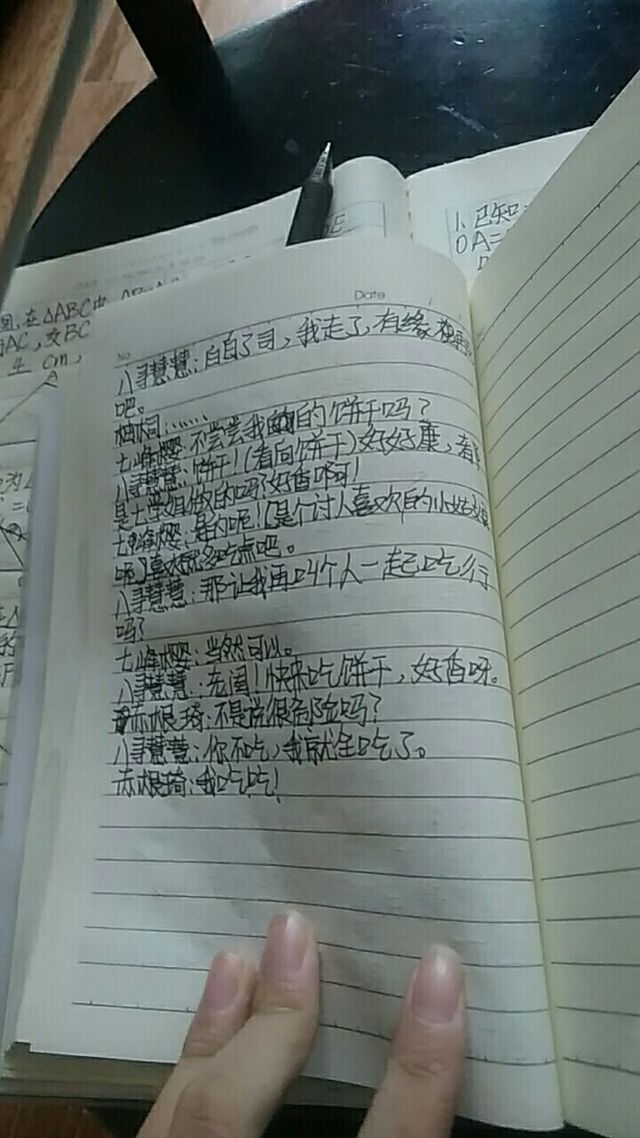 1. 已知
OA=
在△ABC中
AC，交BC
cm，
Date
No
八寻慧慧：白白了司，我走了，有缘再
吧。
柚木同：……
七峰樱：不尝尝我的饼干吗？
八寻慧慧：饼干！（看向饼干）好好重，看
是七学姐做的吗？好香呀！
七峰樱：是的呢！【是个讨人喜欢的小妹妹
呢】喜欢就多吃点吧。
八寻慧慧：那让我再叫个人一起吃行
吗？
七峰樱：当然可以。
八寻慧慧：！快来吃饼干，好香呀。
赤根琦：不是说很危险吗？
八寻慧慧：你不吃，我就全吃了。
赤根琦：我吃吃！